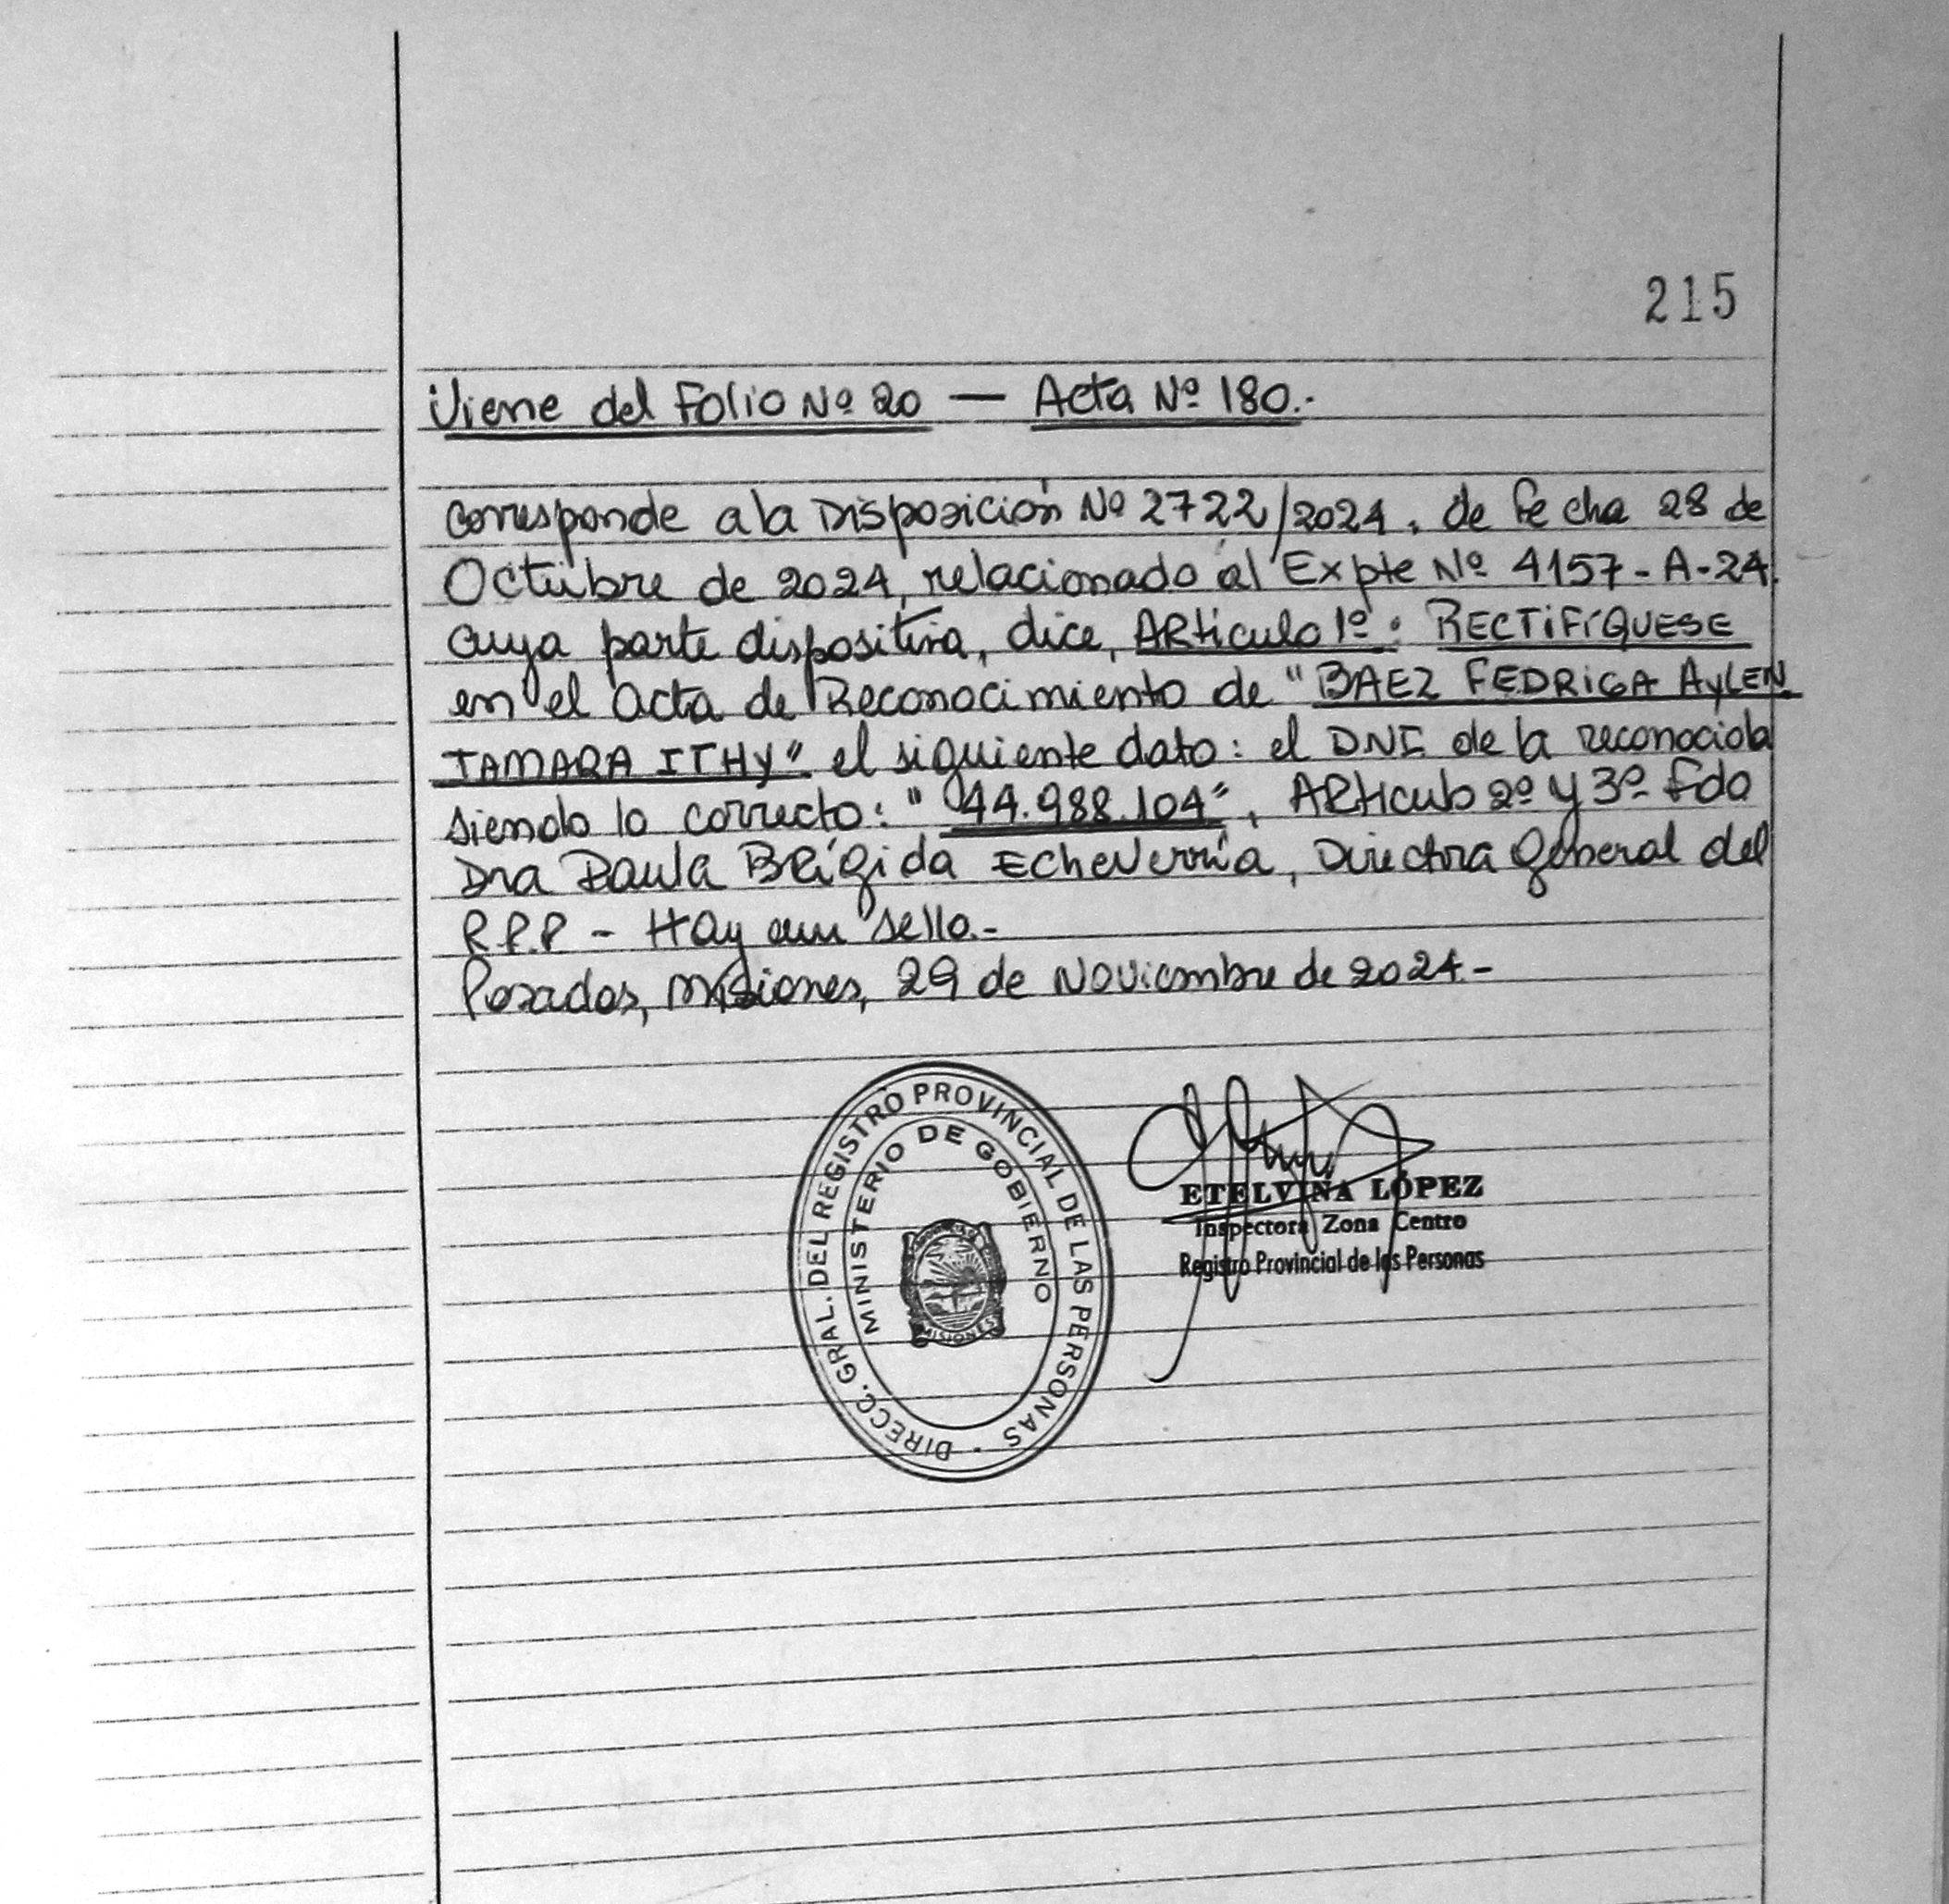 215
Viene del Folio Nº 20 — Acta Nº 180.-
Corresponde a la Disposición Nº 2722/2024, de fecha 28 de
Octubre de 2024, relacionado al Expte Nº 4157-A-24.
cuya parte dispositiva, dice, ARticulo 1º: RECTIFÍQUESE
en el acta de Reconocimiento de "BAEZ FEDRIGA AYLEN
TAMARA ITHY" el siguiente dato: el DNI de la reconocida
siendo lo correcto: "44.988.104", ARticulo 2º y 3º Fdo
Dra Paula Brígida Echeverría, Directora General del
R.P.P - Hay un sello.-
Posadas, Misiones, 29 de Noviembre de 2024.-
DIRECC. GRAL. DEL REGISTRO PROVINCIAL DE LAS PERSONAS
MINISTERIO DE GOBIERNO
MISIONES
ETELVINA LÓPEZ
Inspectora Zona Centro
Registro Provincial de las Personas